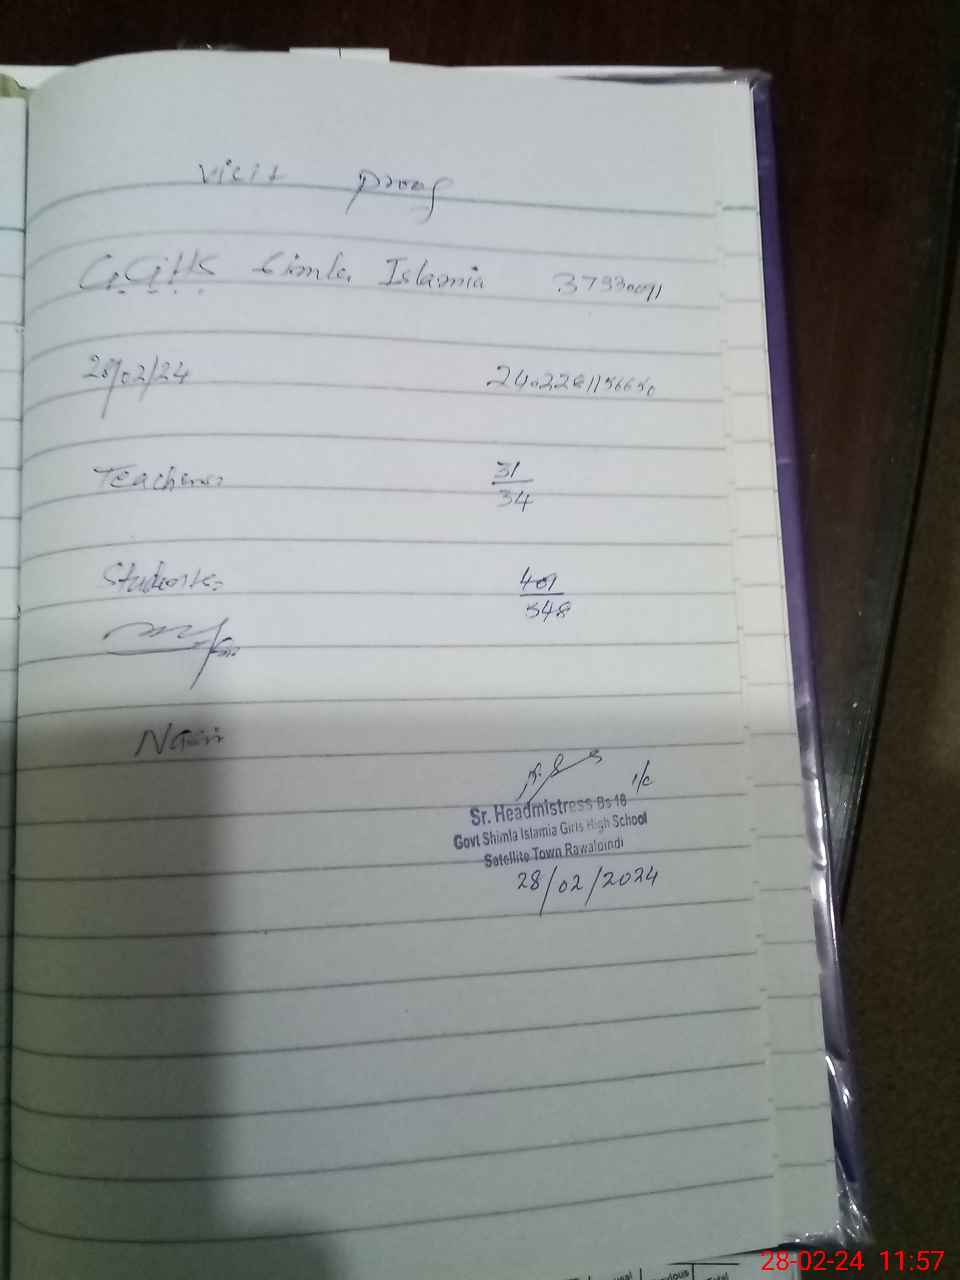 Visit Proof
G.G.H.S Simla Islamia 37330091
28/02/24 2402281156650
Teachers 31/34
Students 401/548
i/c
Sr. Headmistress Bs-18
Govt Shimla Islamia Girls High School
Satellite Town Rawalpindi
28/02/2024
28-02-24 11:57